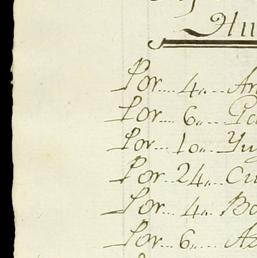 Hu
Por.... 4,.... Ar
Por.... 6,.... Pa
Por.... 10,.. Yu
Por.... 24,.. Cu
Por.... 4,.. Bo
Por.... 6,.. Az